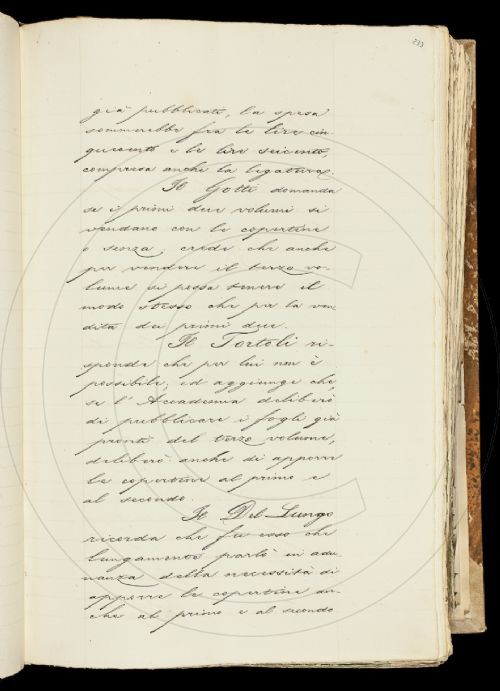 233
già pubblicato, la spesa
sommerebbe fra le lire cin-
quecento e le lire seicento,
compresa anche la legatura.
Il Gotti domanda
se i primi due volumi si
vendano con le copertine
o senza, crede che anche
per vendere il terzo vo-
lume si possa tenere il
modo stesso che per la ven
dita dei primi due.
Il Tortoli ri-
sponde che per lui non è
possibile; ed aggiunge che,
se l'Accademia deliberò
di pubblicare i fogli già
pronti del terzo volume,
deliberò anche di apporre
le copertine al primo e
al secondo.
Il Del Lungo
ricorda che fu esso che
lungamente parlò in adu-
nanza della necessità di
apporre le copertine an-
che al primo e al secondo